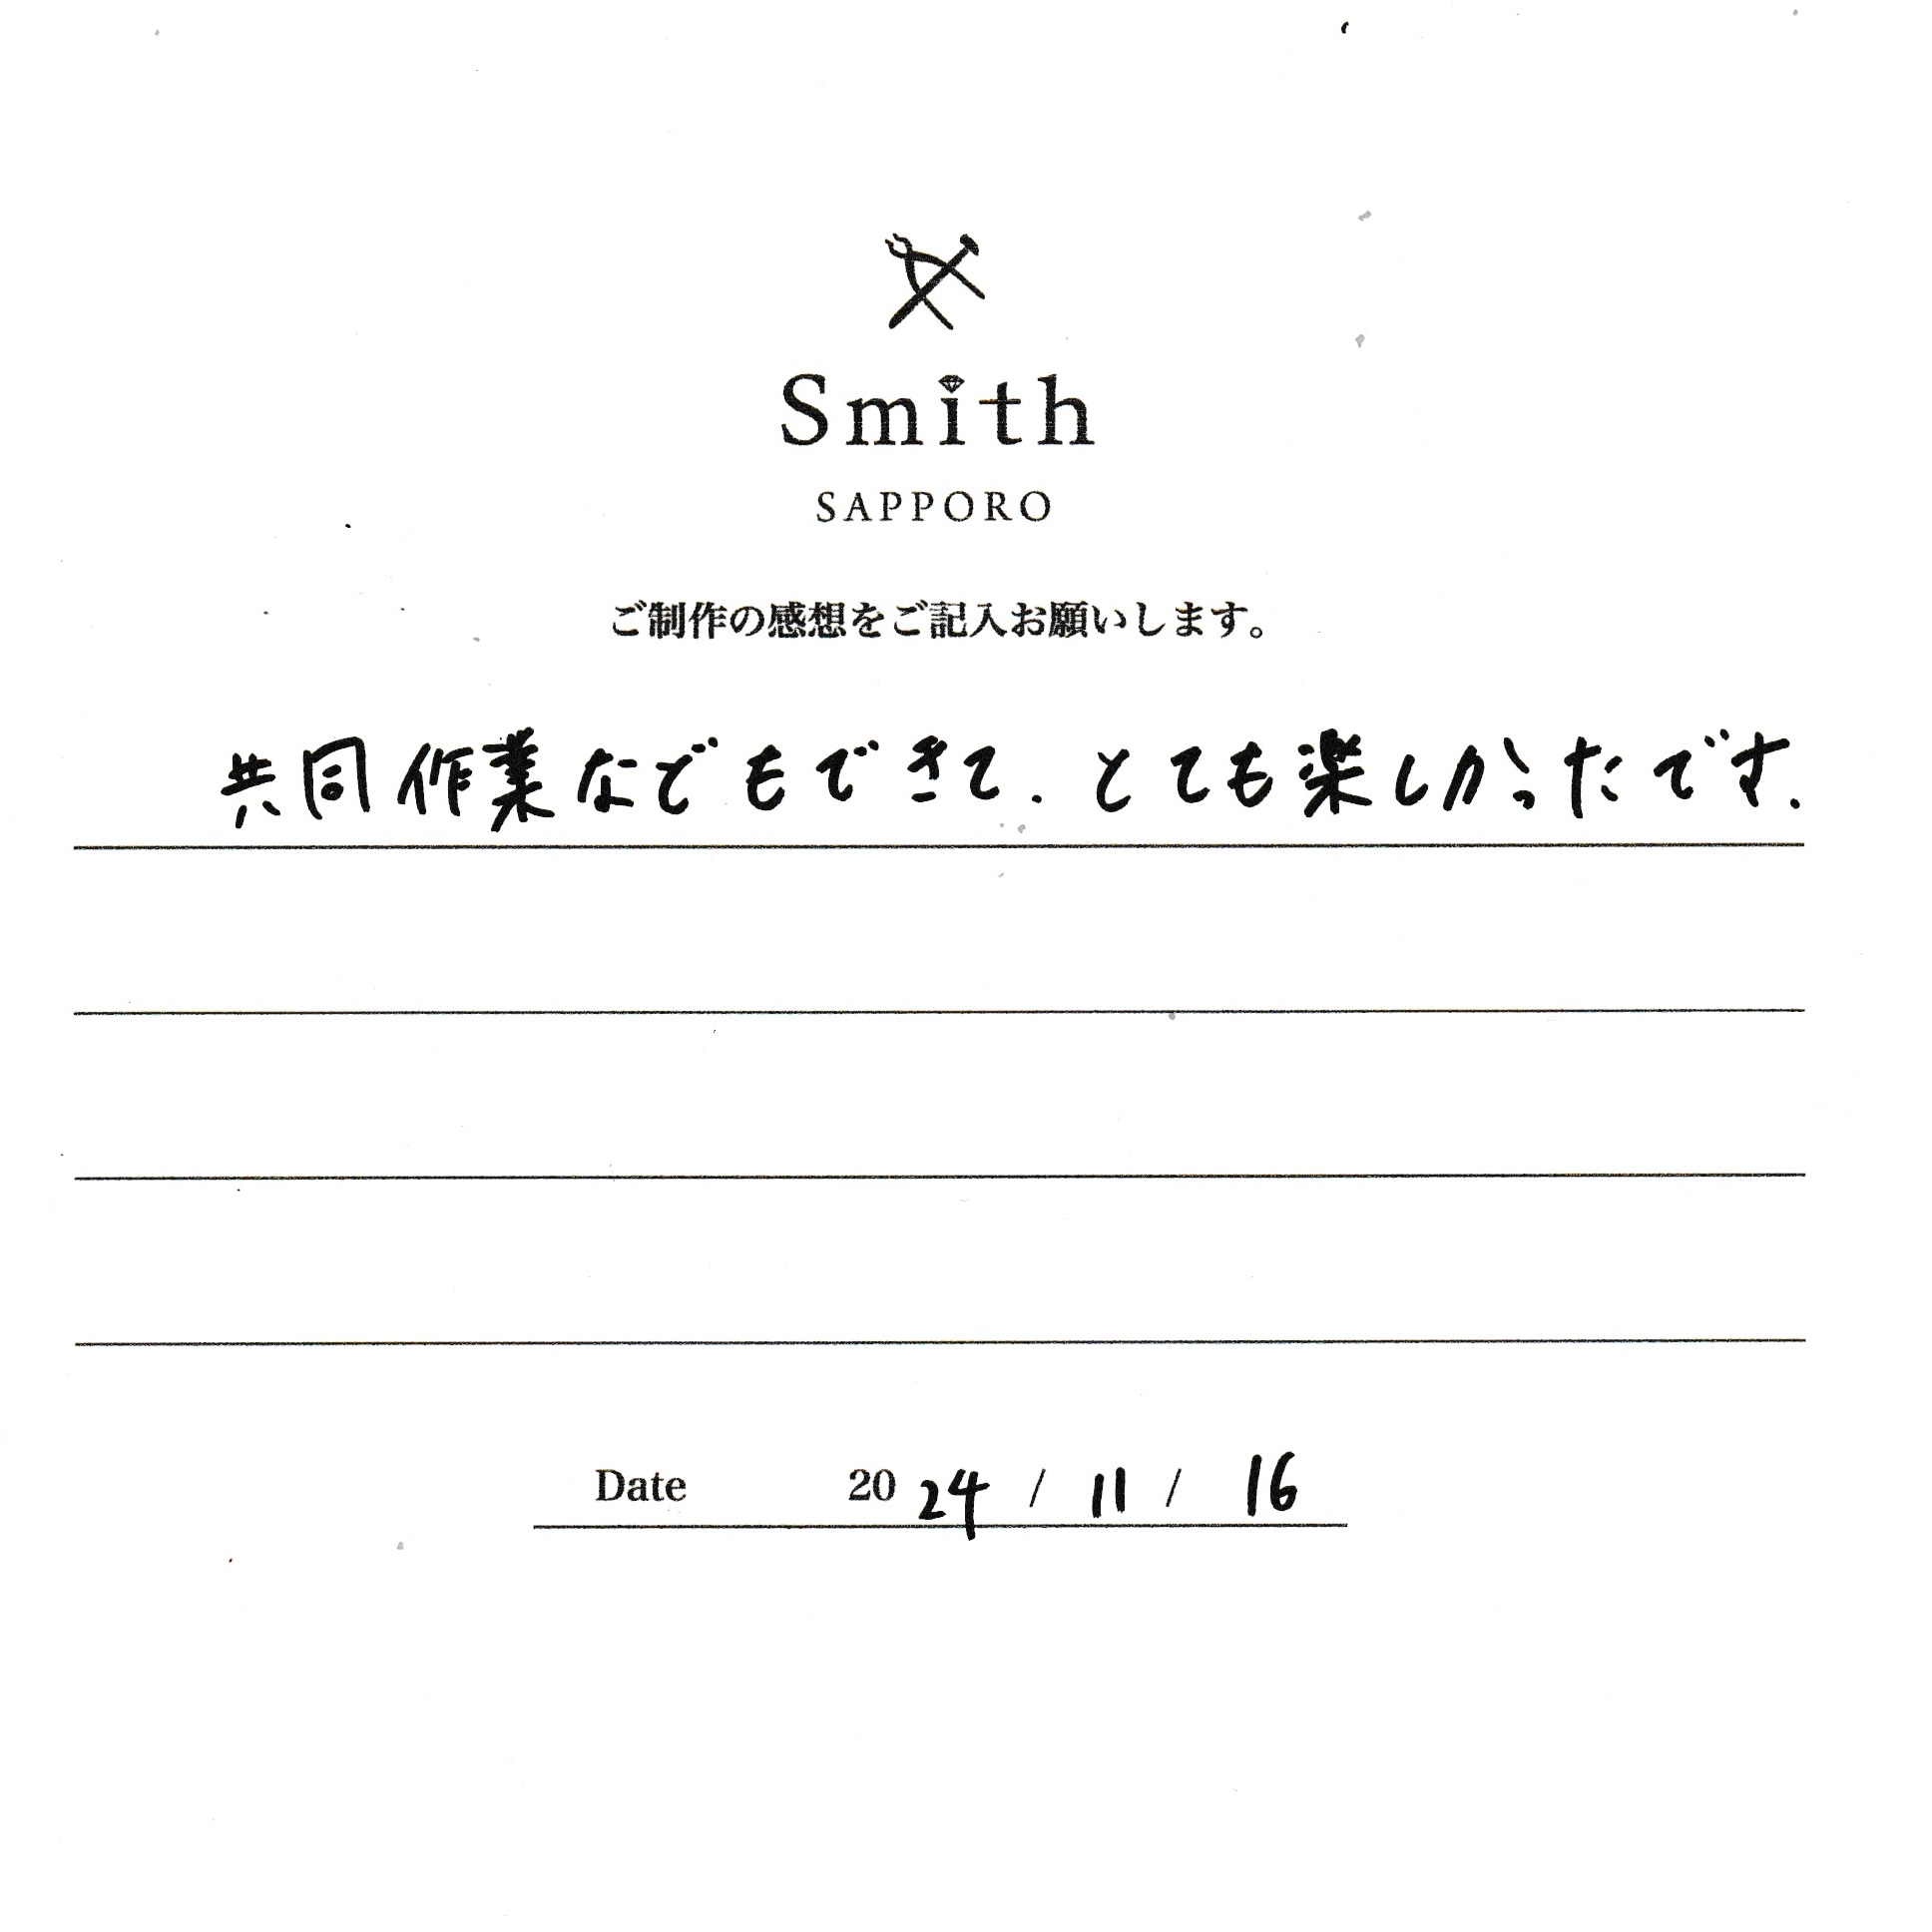 Smith
SAPPORO
ご制作の感想をご記入お願いします。
共同作業などもできて.とても楽しかったです.
Date 2024 / 11 / 16